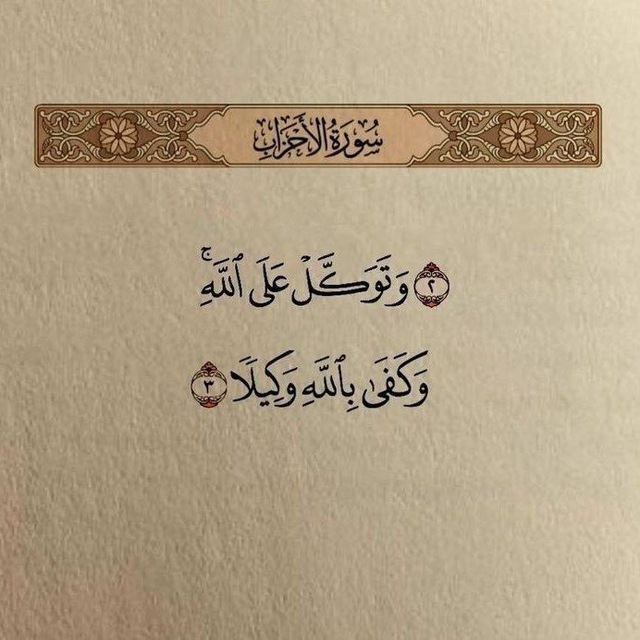 سُورَةُ الأَحْزَابِ
٢ وَتَوَكَّلْ عَلَى ٱللَّهِۚ
وَكَفَىٰ بِٱللَّهِ وَكِيلًا ٣